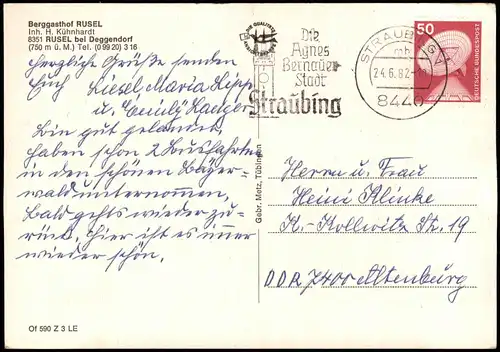 Berggasthof RUSEL
Inh. H. Kühnhardt
8351 RUSEL bei Deggendorf
(750 m ü. M.) Tel. (0 99 20) 3 16
Herzliche Grüße senden
Euch Liesel Maria Lipp
u. Emily
Bin gut gelandet,
haben schon 2 Busfahrten
in den schönen Bayer-
wald unternommen,
bald gehts wieder zu-
rück. Hier ist es immer
wieder schön.
Of 590 Z 3 LE
Gebr. Metz, Tübingen
Die
Agnes
Bernauer
Stadt
Straubing
STRAUBING 1
mb
24.6.82-
8440
50
DEUTSCHE BUNDESPOST
Herrn u. Frau
Heini Klinke
K.-Kollwitz St. 19
DDR 7400 Altenburg